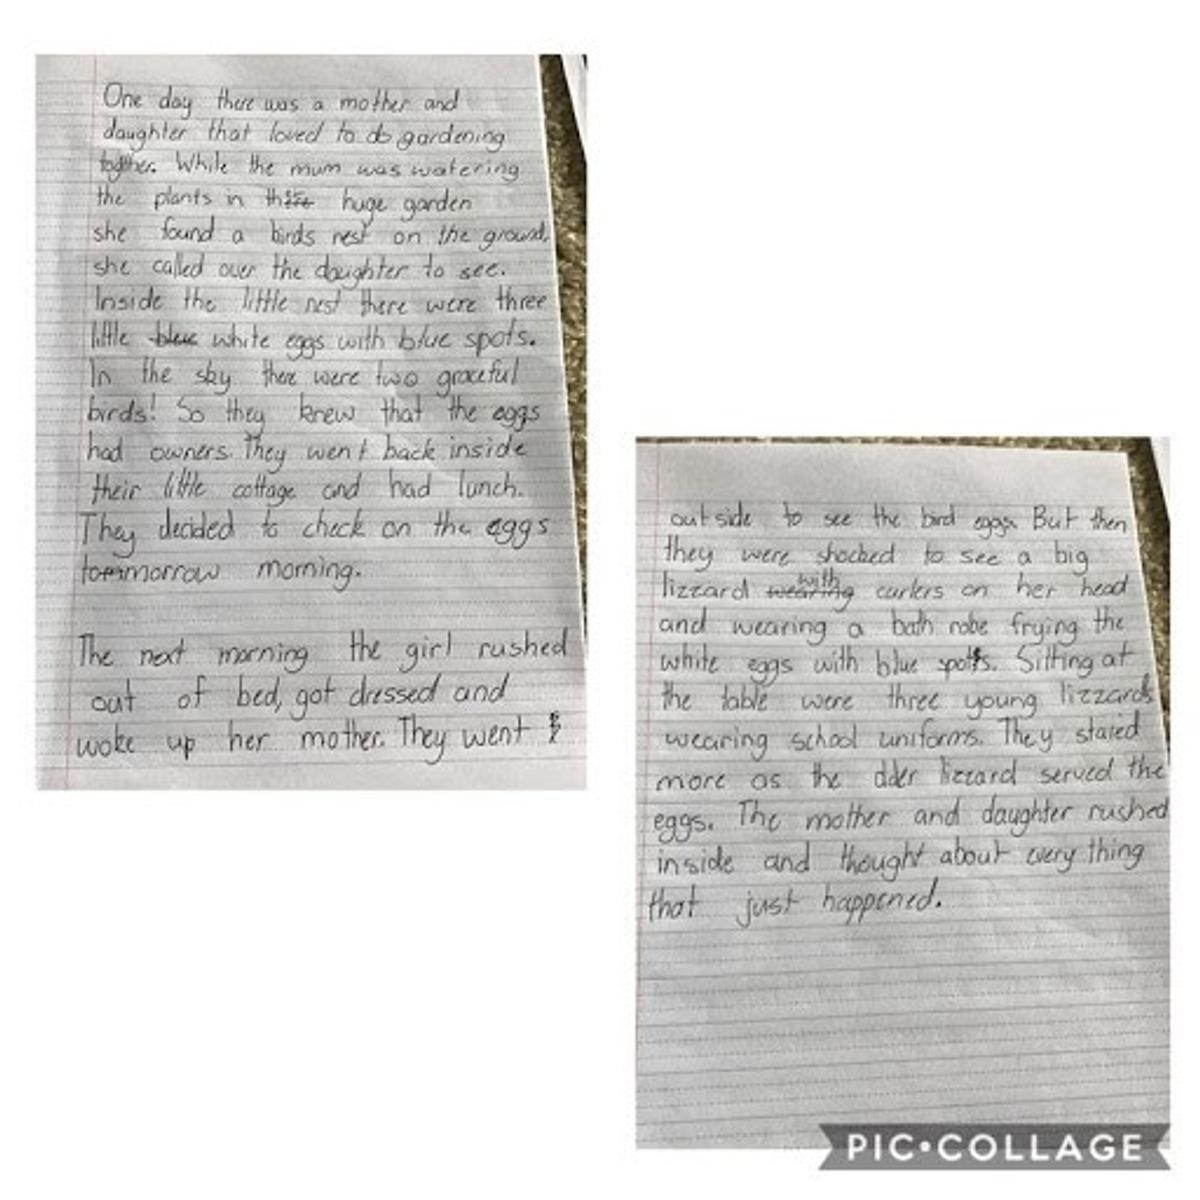 One day there was a mother and
daughter that loved to do gardening
together. While the mum was watering
the plants in huge garden
she found a birds nest on the ground,
she called over the daughter to see.
Inside the little nest there were three
little blue white eggs with blue spots.
In the sky there were two graceful
birds! So they knew that the eggs
had owners. They went back inside
their little cottage and had lunch.
They decided to check on the eggs
tommorrow morning.
The next morning the girl rushed
out of bed, got dressed and
woke up her mother. They went
outside to see the bird eggs. But then
they were shocked to see a big
lizzard wearing with curlers on her head
and wearing a bath robe frying the
white eggs with blue spots. Sitting at
the table were three young lizzards
wearing school uniforms. They staied
more as the older lizzard served the
eggs. The mother and daughter rushed
inside and thought about every thing
that just happened.
PIC•COLLAGE